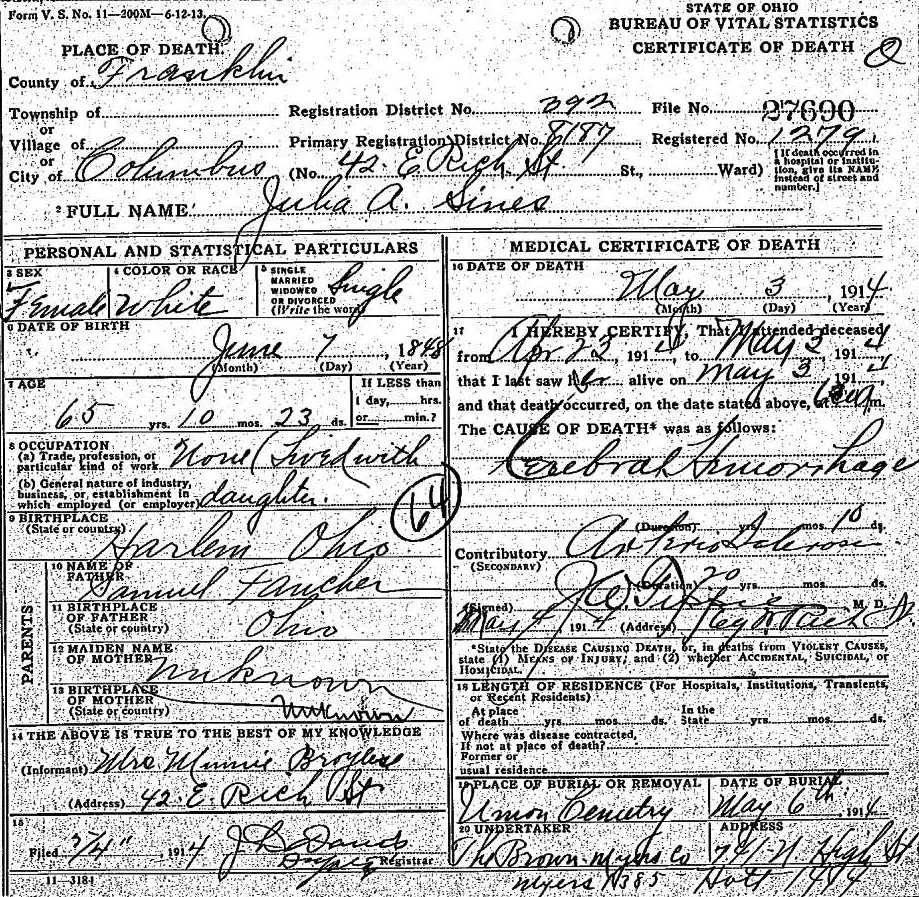 Form V. S. No. 11—200M—6-12-13.
STATE OF OHIO
BUREAU OF VITAL STATISTICS
CERTIFICATE OF DEATH
PLACE OF DEATH.
County of Franklin
Township of
or
Village of
or
City of Columbus
Registration District No. 392
File No. 27690
Primary Registration District No. 8187
Registered No. 1279
(No. 42 E. Rich St St., Ward)
[If death occurred in a hospital or institution, give its NAME instead of street and number.]
2 FULL NAME Julia A. Sines
PERSONAL AND STATISTICAL PARTICULARS
3 SEX
Female
4 COLOR OR RACE
White
5 SINGLE
MARRIED
WIDOWED
OR DIVORCED
(Write the word)
Single
6 DATE OF BIRTH
June 7, 1848
(Month) (Day) (Year)
7 AGE
65 yrs. 10 mos. 23 ds.
If LESS than
1 day, hrs.
or min.?
8 OCCUPATION
(a) Trade, profession, or
particular kind of work None (Lived with
(b) General nature of industry,
business, or establishment in
which employed (or employer) daughter.
64
9 BIRTHPLACE
(State or country)
Harlem Ohio
PARENTS
10 NAME OF
FATHER
Samuel Fancher
11 BIRTHPLACE
OF FATHER
(State or country)
Ohio
12 MAIDEN NAME
OF MOTHER
Unknown
13 BIRTHPLACE
OF MOTHER
(State or country)
Unknown
14 THE ABOVE IS TRUE TO THE BEST OF MY KNOWLEDGE
(Informant) Mrs Minnie
(Address) 42. E. Rich St
15
Filed 5/4" 1914
Registrar
11—3184
MEDICAL CERTIFICATE OF DEATH
16 DATE OF DEATH
May 3, 1914
(Month) (Day) (Year)
17 I HEREBY CERTIFY, That I attended deceased
from Apr 23, 1914, to May 3, 1914
that I last saw her alive on May 3, 1914
and that death occurred, on the date stated above, at m.
The CAUSE OF DEATH* was as follows:
Cerebral Hmorrhage
(Duration) yrs. mos. 10 ds.
Contributory Arterio Sclerosis
(SECONDARY)
(Duration) 20 yrs. mos. ds.
(Signed) M. D.
May 4, 1914 (Address)
*State the DISEASE CAUSING DEATH, or, in deaths from VIOLENT CAUSES,
state (1) MEANS OF INJURY; and (2) whether ACCIDENTAL, SUICIDAL, or
HOMICIDAL.
18 LENGTH OF RESIDENCE (For Hospitals, Institutions, Transients,
or Recent Residents)
At place
of death yrs. mos. ds.
In the
State yrs. mos. ds.
Where was disease contracted,
If not at place of death?
Former or
usual residence
19 PLACE OF BURIAL OR REMOVAL
Union Cemetry
DATE OF BURIAL
May 6th, 1914
20 UNDERTAKER
The Brown-Myers Co
ADDRESS
791 N High St
Myers 1385